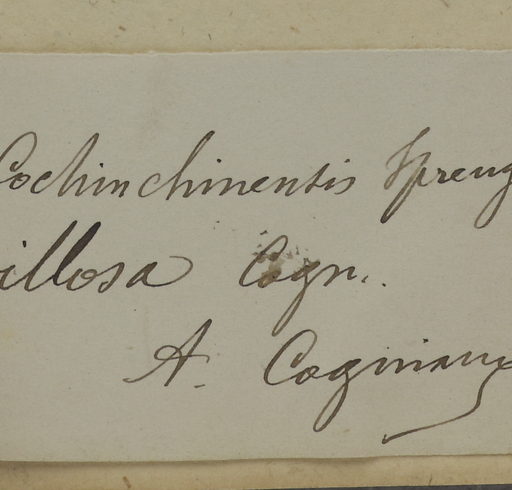 Cochinchinensis Spreng
illosa Cogn.
A. Cogniaux